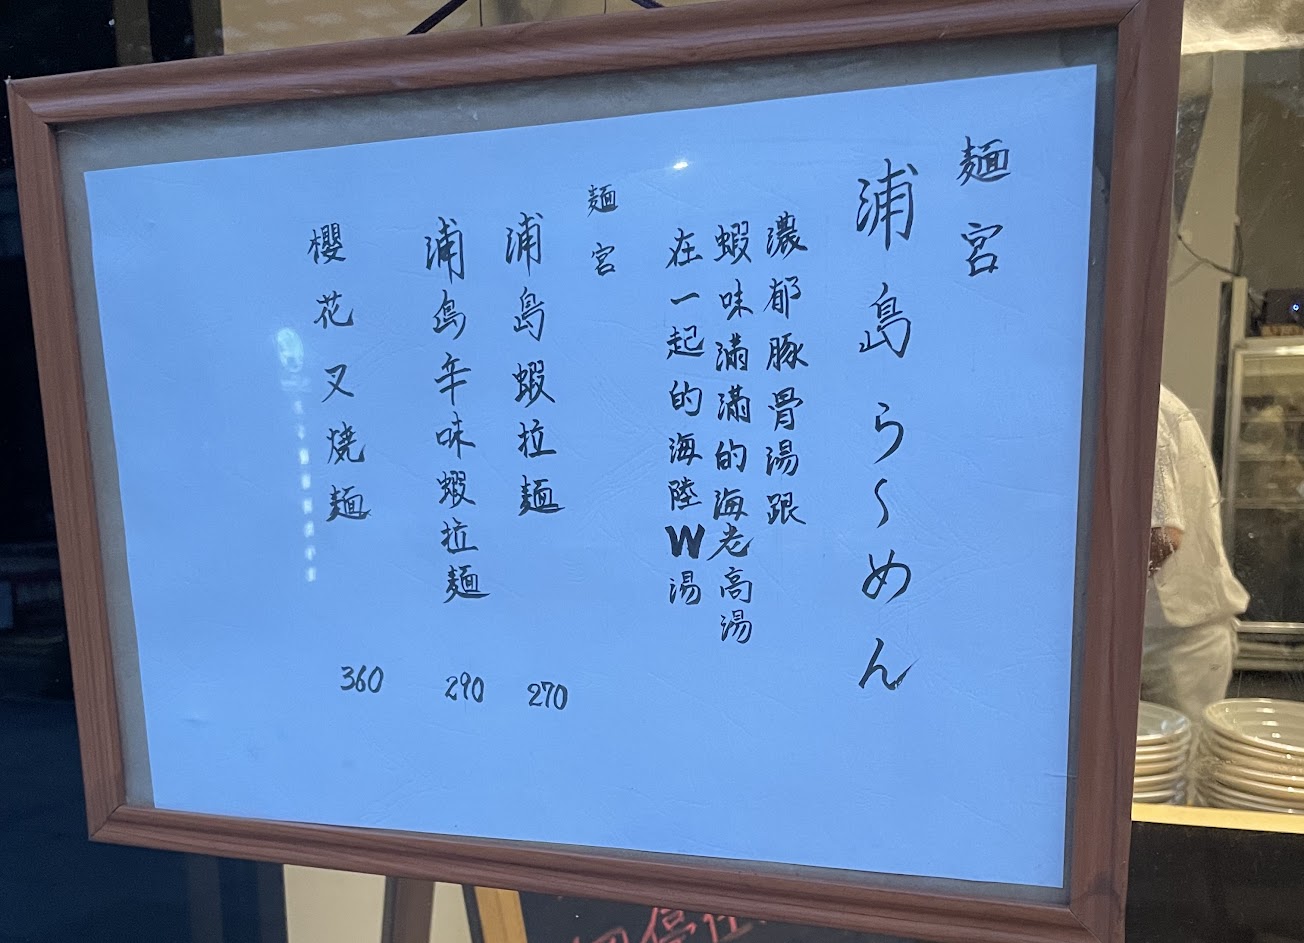 麵宮
浦島ら～めん
濃郁豚骨湯跟
蝦味滿滿的海老高湯
在一起的海陸W湯
麵宮
浦島蝦拉麵 270
浦島辛味蝦拉麵 290
櫻花叉燒麵 360
停